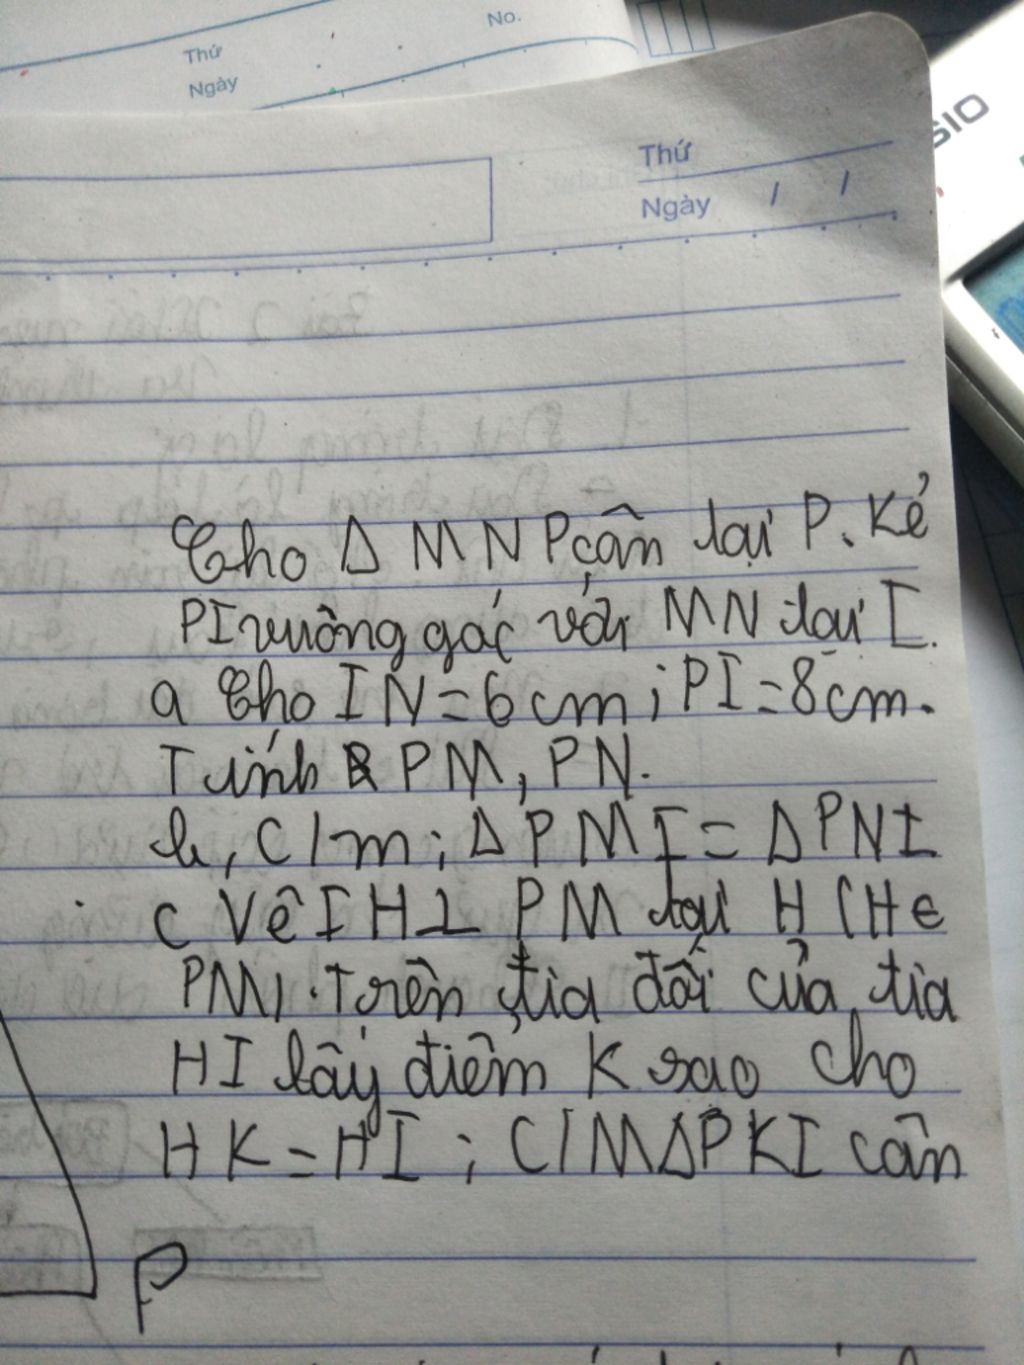 No.
Thứ
Ngày
SIO
Thứ
Ngày / /
Cho Δ MNP cân tại P. Kẻ
PI vuông góc với MN tại I.
a Cho IN = 6 cm ; PI = 8 cm.
Tính PM, PN.
b, C/m ; Δ PMI = Δ PNI
c Vẽ IH ⊥ PM tại H (H ∈
PM). Trên tia đối của tia
HI lấy điểm K sao cho
HK = HI ; C/M Δ PKI cân
P